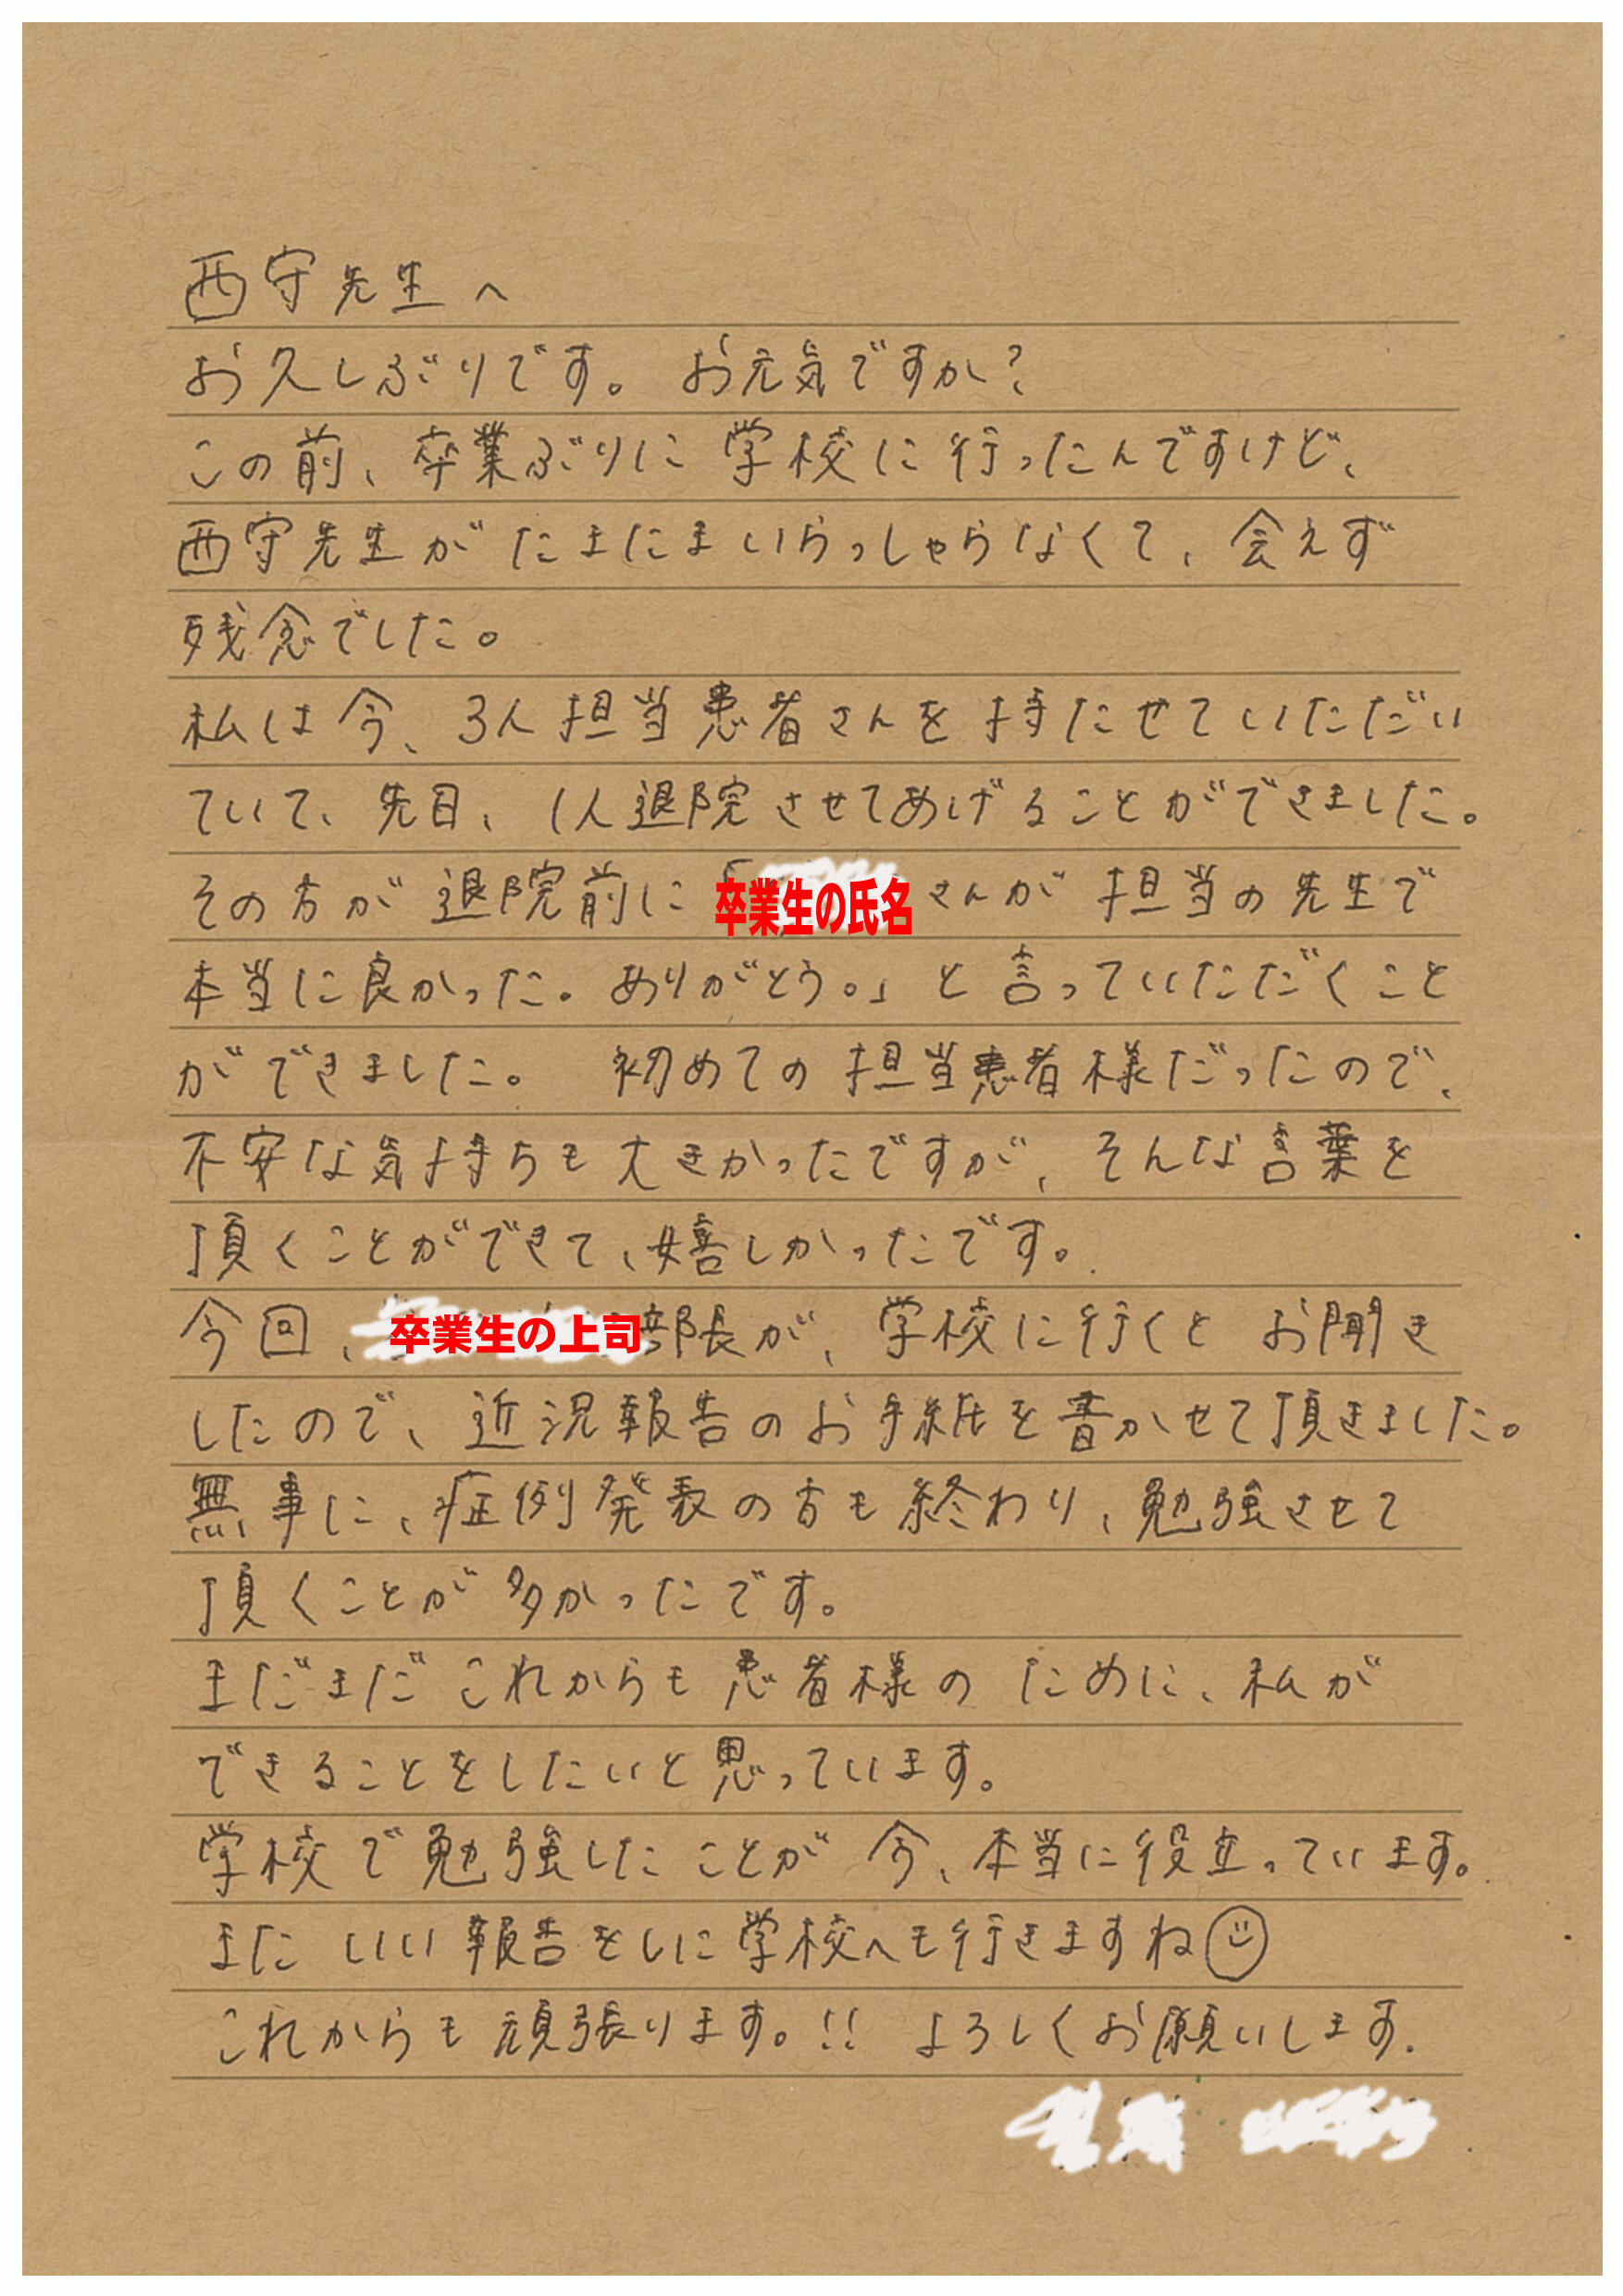 西守先生へ
お久しぶりです。お元気ですか？
この前、卒業ぶりに学校に行ったんですけど、
西守先生がたまたまいらっしゃらなくて、会えず
残念でした。
私は今、3人担当患者さんを持たせていただい
ていて、先日、1人退院させてあげることができました。
その方が退院前に「卒業生の氏名さんが担当の先生で
本当に良かった。ありがとう。」と言っていただくこと
ができました。 初めての担当患者様だったので、
不安な気持ちも大きかったですが、そんな言葉を
頂くことができて、嬉しかったです。
今回、卒業生の上司部長が、学校に行くとお聞き
したので、近況報告のお手紙を書かせて頂きました。
無事に、症例発表の方も終わり、勉強させて
頂くことが多かったです。
まだまだこれからも患者様のために、私が
できることをしたいと思っています。
学校で勉強したことが今、本当に役立っています。
またいい報告をしに学校へも行きますね
これからも頑張ります。!! よろしくお願いします.